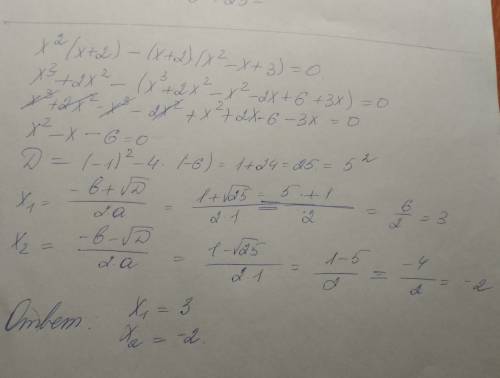 x²(x+2) - (x+2)(x²-x+3) = 0
x³+2x² - (x³+2x²-x²-2x+6+3x) = 0
x³+2x²-x³-2x²+x²+2x-6-3x = 0
x²-x-6=0
D = (-1)²-4·(-6) = 1+24=25 = 5²
x₁ = (-b+√D)/(2a) = (1+√25)/(2·1) = (5+1)/2 = 6/2 = 3
x₂ = (-b-√D)/(2a) = (1-√25)/(2·1) = (1-5)/2 = -4/2 = -2
Ответ: x₁ = 3
x₂ = -2.